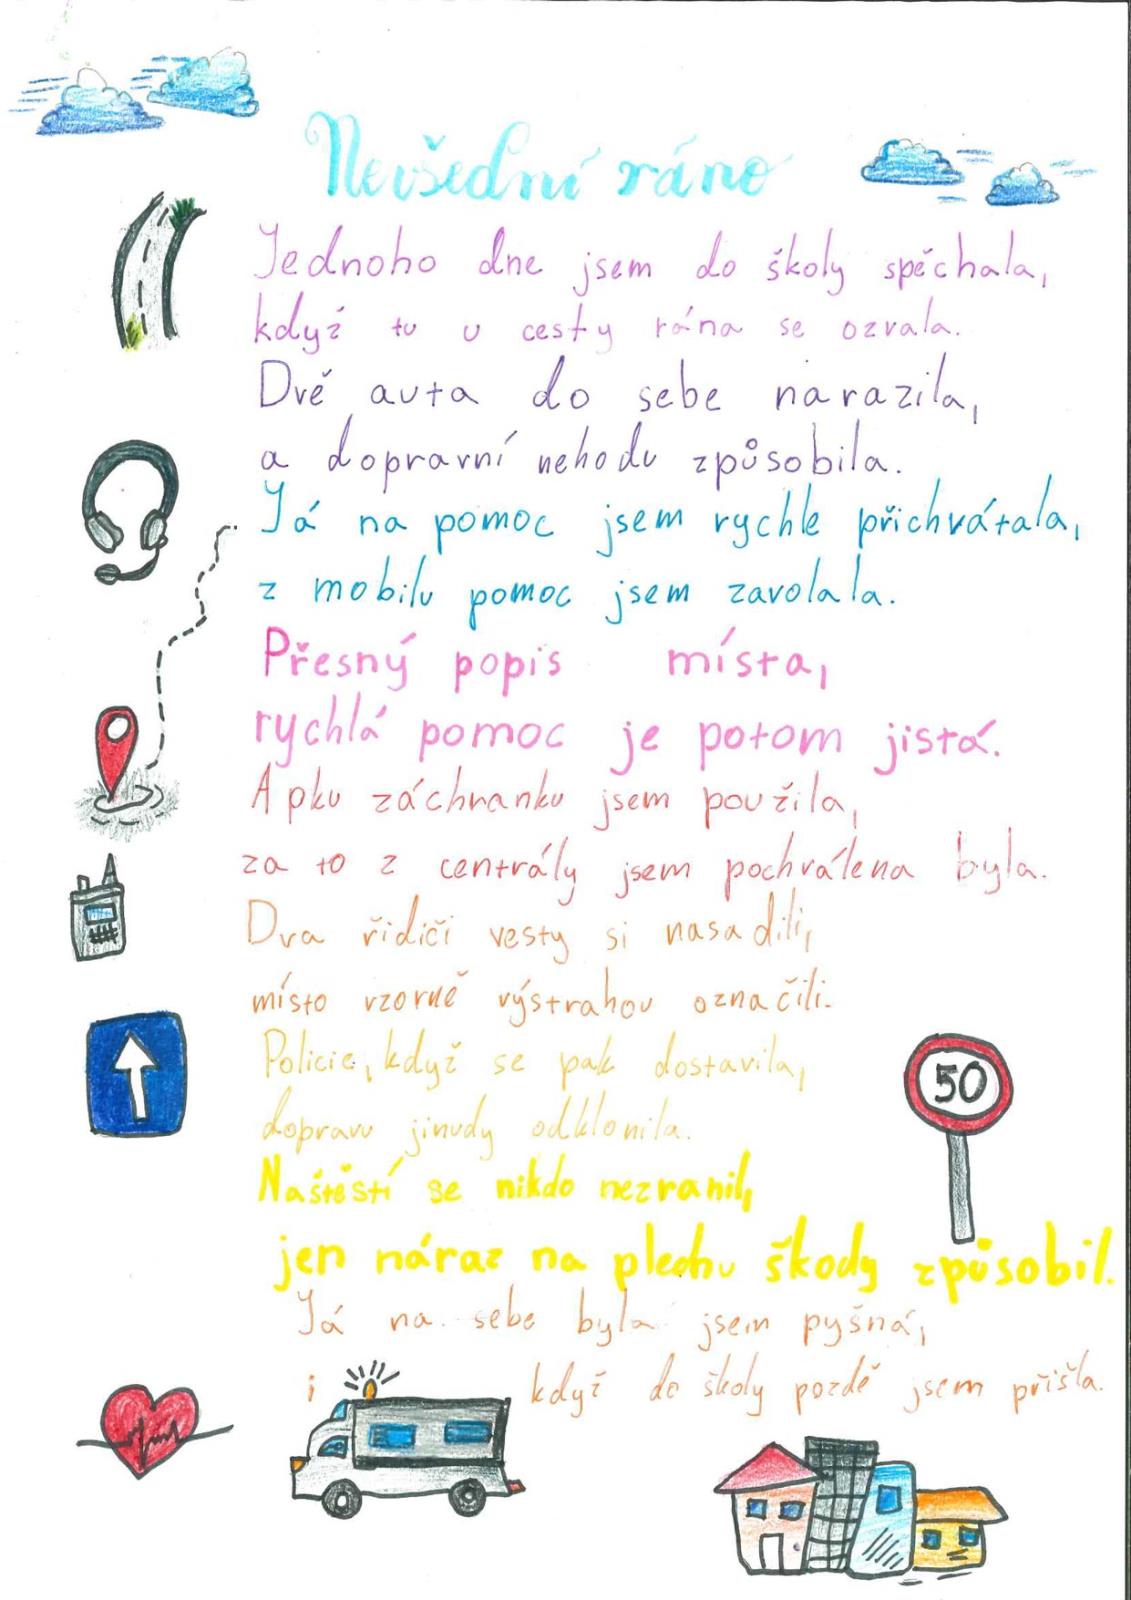 Nevšední ráno
Jednoho dne jsem do školy spěchala,
když tu u cesty rána se ozvala.
Dvě auta do sebe narazila,
a dopravní nehodu způsobila.
Já na pomoc jsem rychle přichvátala,
z mobilu pomoc jsem zavolala.
Přesný popis místa,
rychlá pomoc je potom jistá.
Apku záchranku jsem použila,
za to z centrály jsem pochválena byla.
Dva řidiči vesty si nasadili,
místo vzorně výstrahou označili.
Policie, když se pak dostavila,
dopravu jinudy odklonila.
50
Naštěstí se nikdo nezranil,
jen náraz na plechu škody způsobil.
Já na sebe byla jsem pyšná,
i když do školy pozdě jsem přišla.